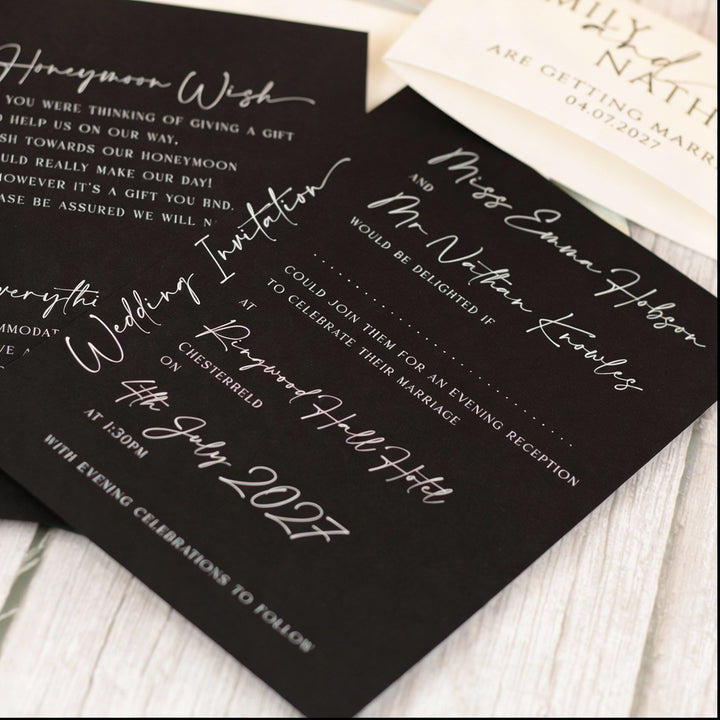 Honeymoon Wish
YOU WERE THINKING OF GIVING A GIFT
HELP US ON OUR WAY,
TOWARDS OUR HONEYMOON
REALLY MAKE OUR DAY!
HOWEVER IT'S A GIFT YOU
BE ASSURED WE WILL
WE A
Wedding Invitation
Miss Emma Hobson
AND
Mr Nathan Knowles
WOULD BE DELIGHTED IF
COULD JOIN THEM FOR AN EVENING RECEPTION
TO CELEBRATE THEIR MARRIAGE
AT
Ringwood Hall Hotel
CHESTERRELD
ON
4th July 2027
AT 1:30PM
WITH EVENING CELEBRATIONS TO FOLLOW
and
NATH
ARE GETTING MARR
04.07.2027